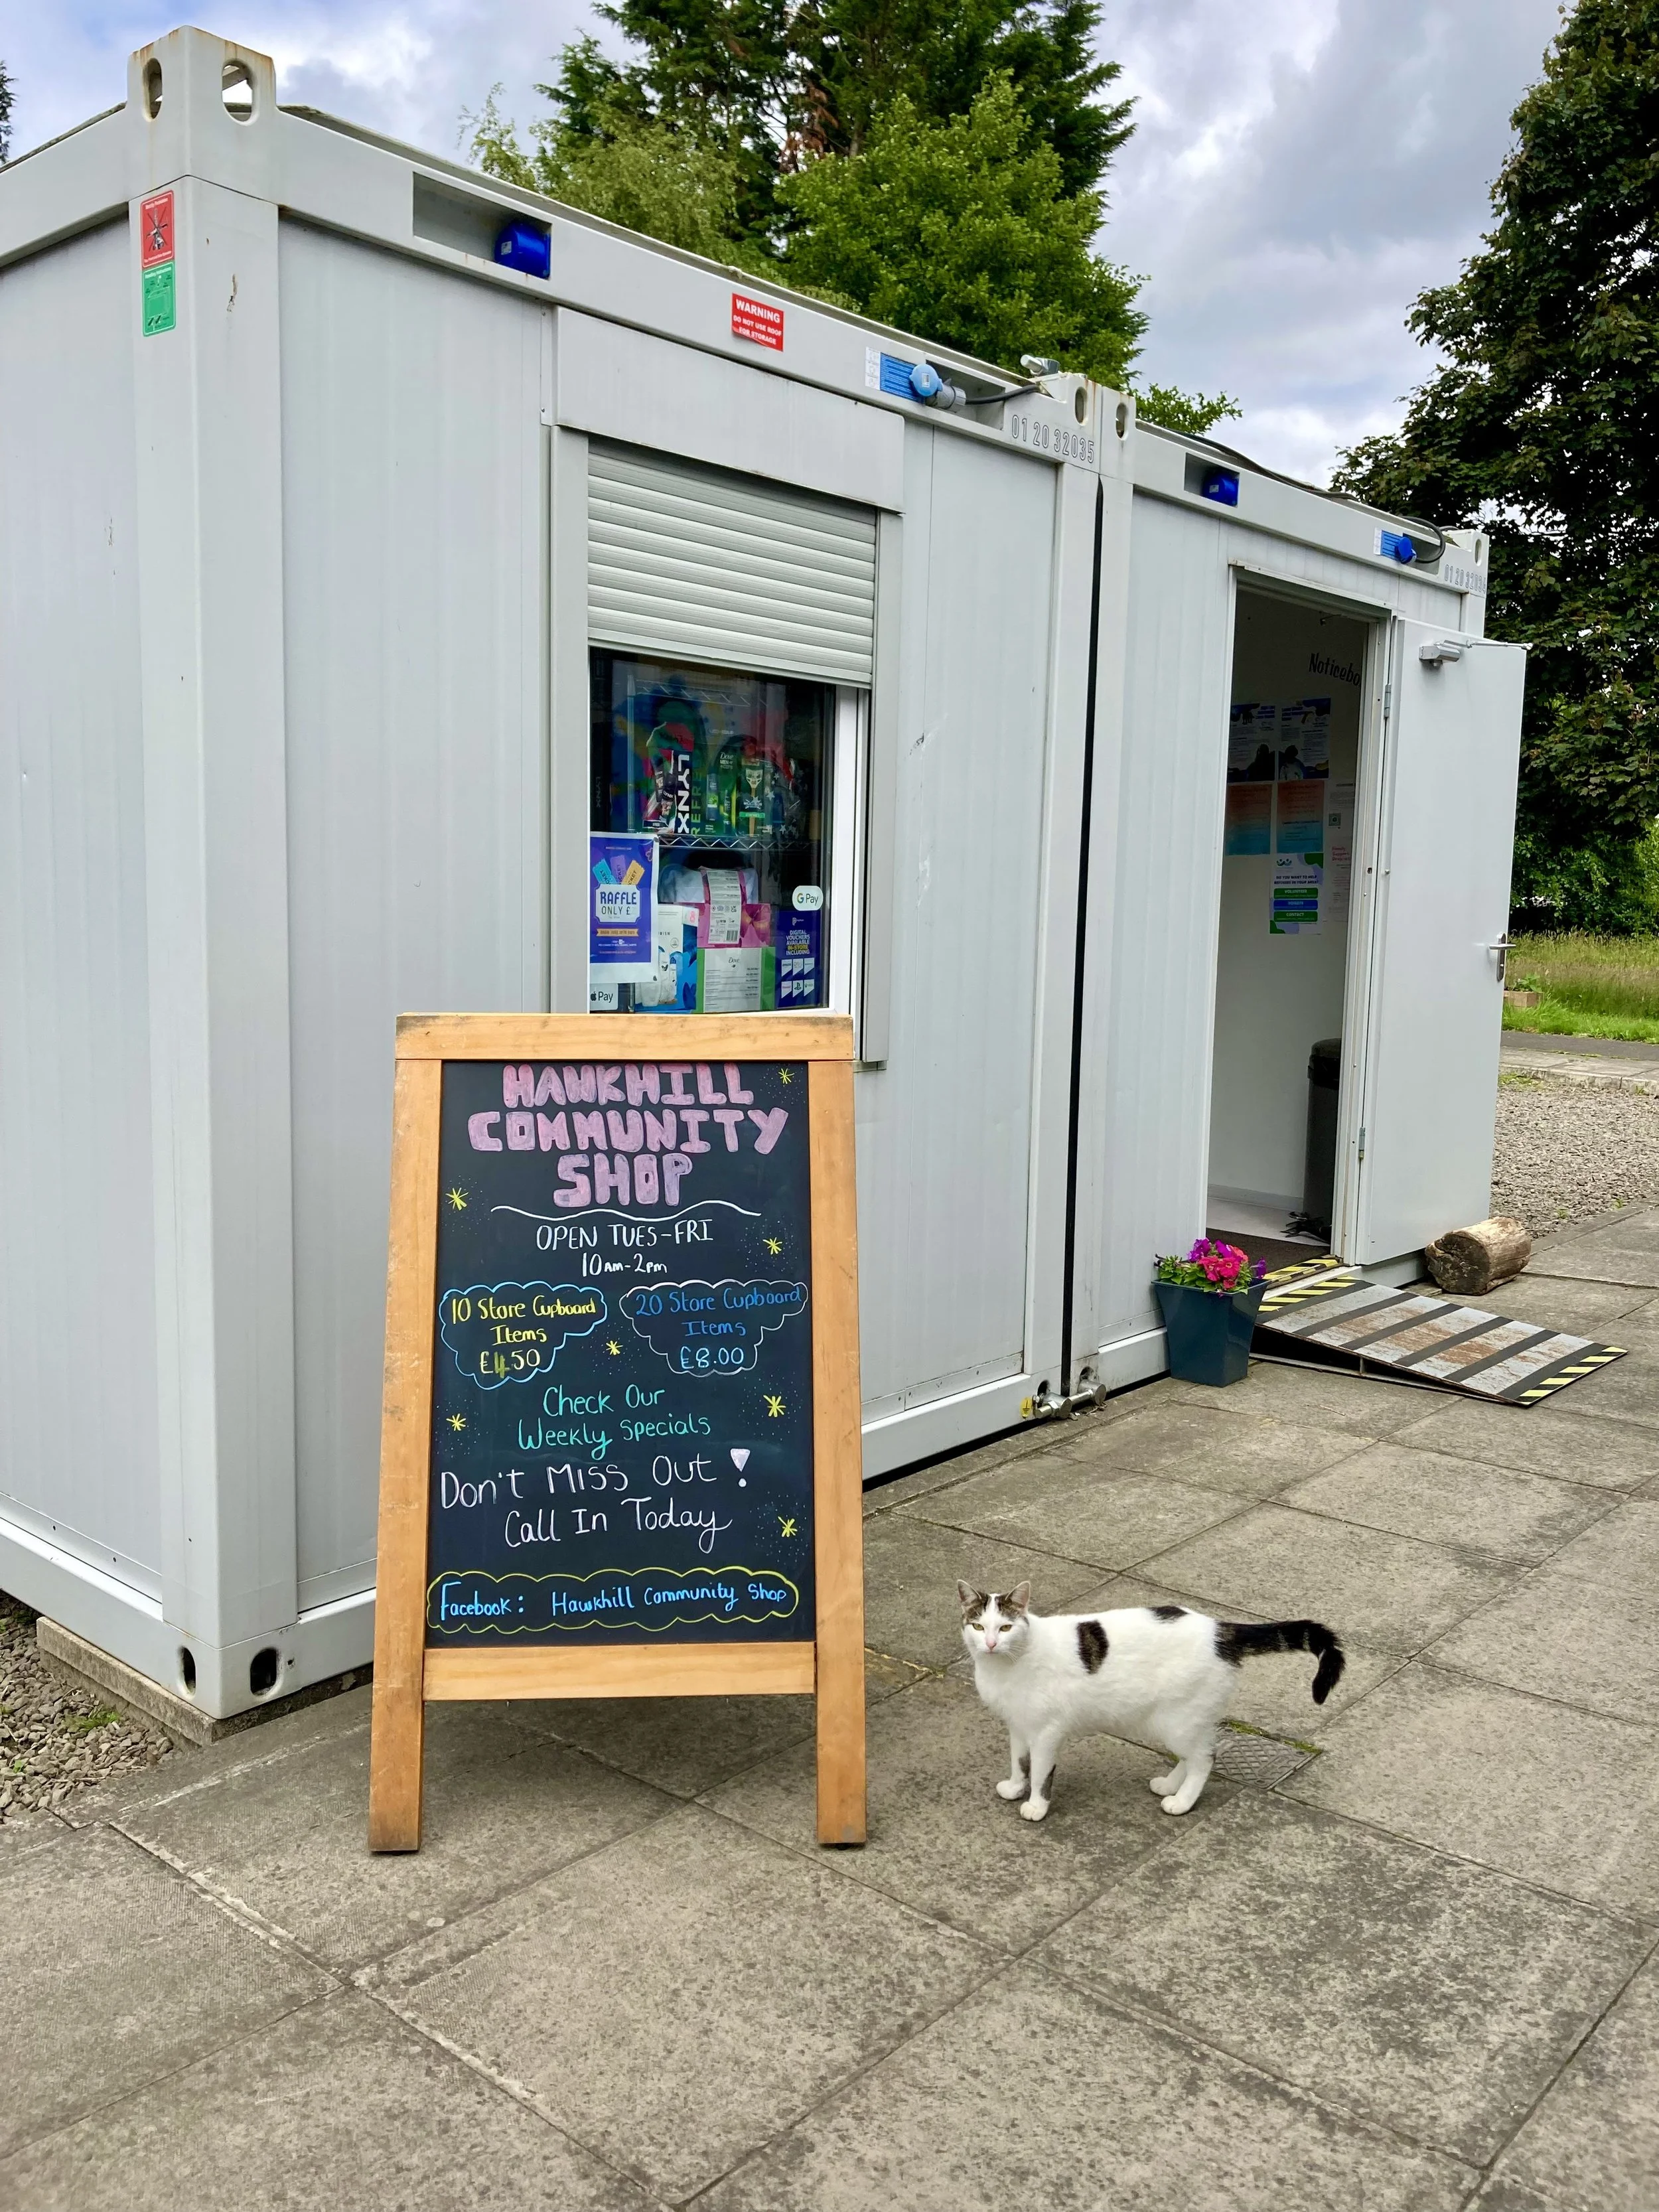 WARNING
DO NOT USE ROOF
FOR STORAGE
01 20 32035
Noticebo
LYNX
RAFFLE
ONLY £
G Pay
DIGITAL
VOUCHERS
AVAILABLE
IN-STORE
INCLUDING
Dove
Pay
VOLUNTEER
CONTACT
HAWKHILL
COMMUNITY
SHOP
OPEN TUES-FRI
10AM-2PM
10 Store Cupboard
Items
£4.50
20 Store Cupboard
Items
£8.00
Check Our
Weekly Specials
Don't Miss Out!
Call In Today
Facebook: Hawkhill Community Shop